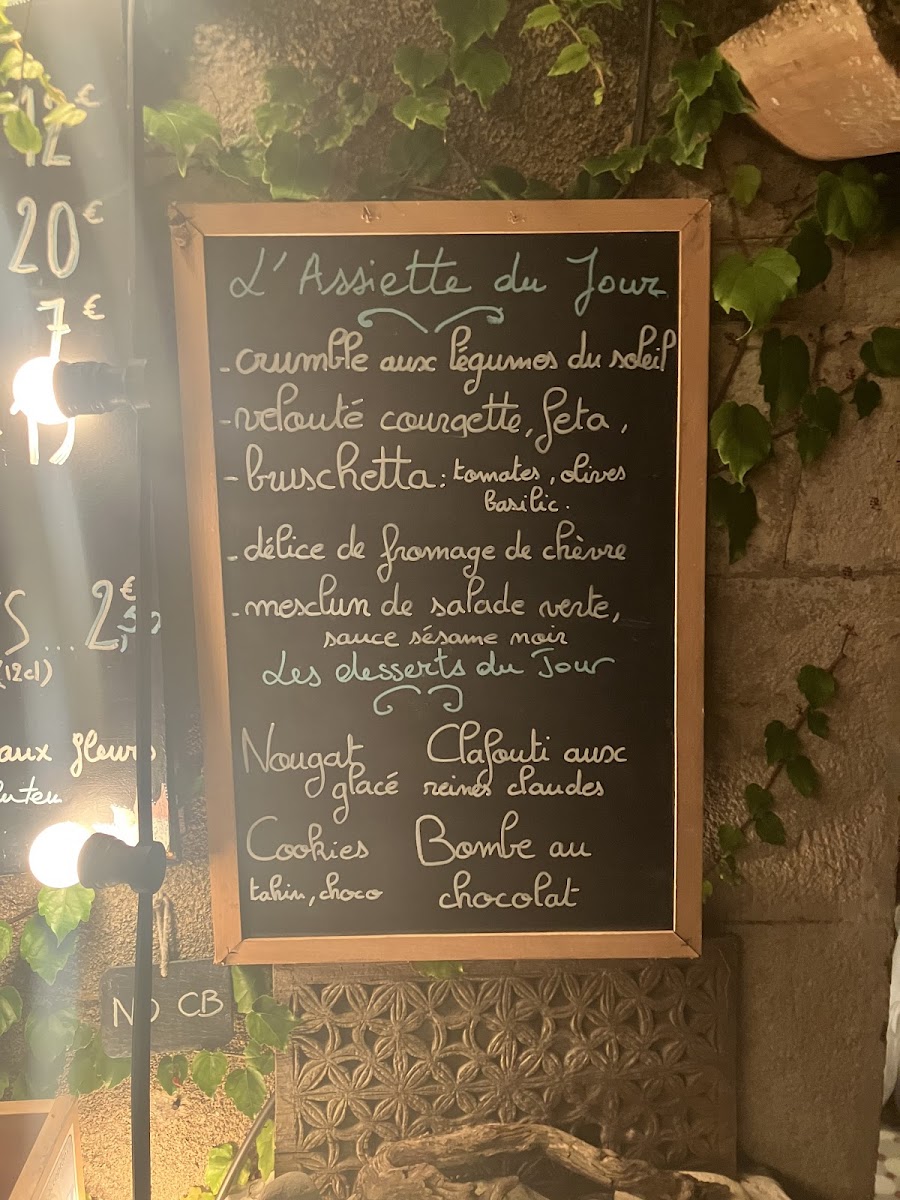 12€
20€
7€
S...2€,50
(12cl)
aux fleurs
L'Assiette du Jour
- crumble aux légumes du soleil
- velouté courgette, feta,
- bruschetta : tomates, olives
basilic.
- délice de fromage de chèvre
- mesclun de salade verte,
sauce sésame noir
Les desserts du Jour
Nougat
glacé
Clafouti aux
reines claudes
Cookies
tahin, choco
Bombe au
chocolat
NO CB